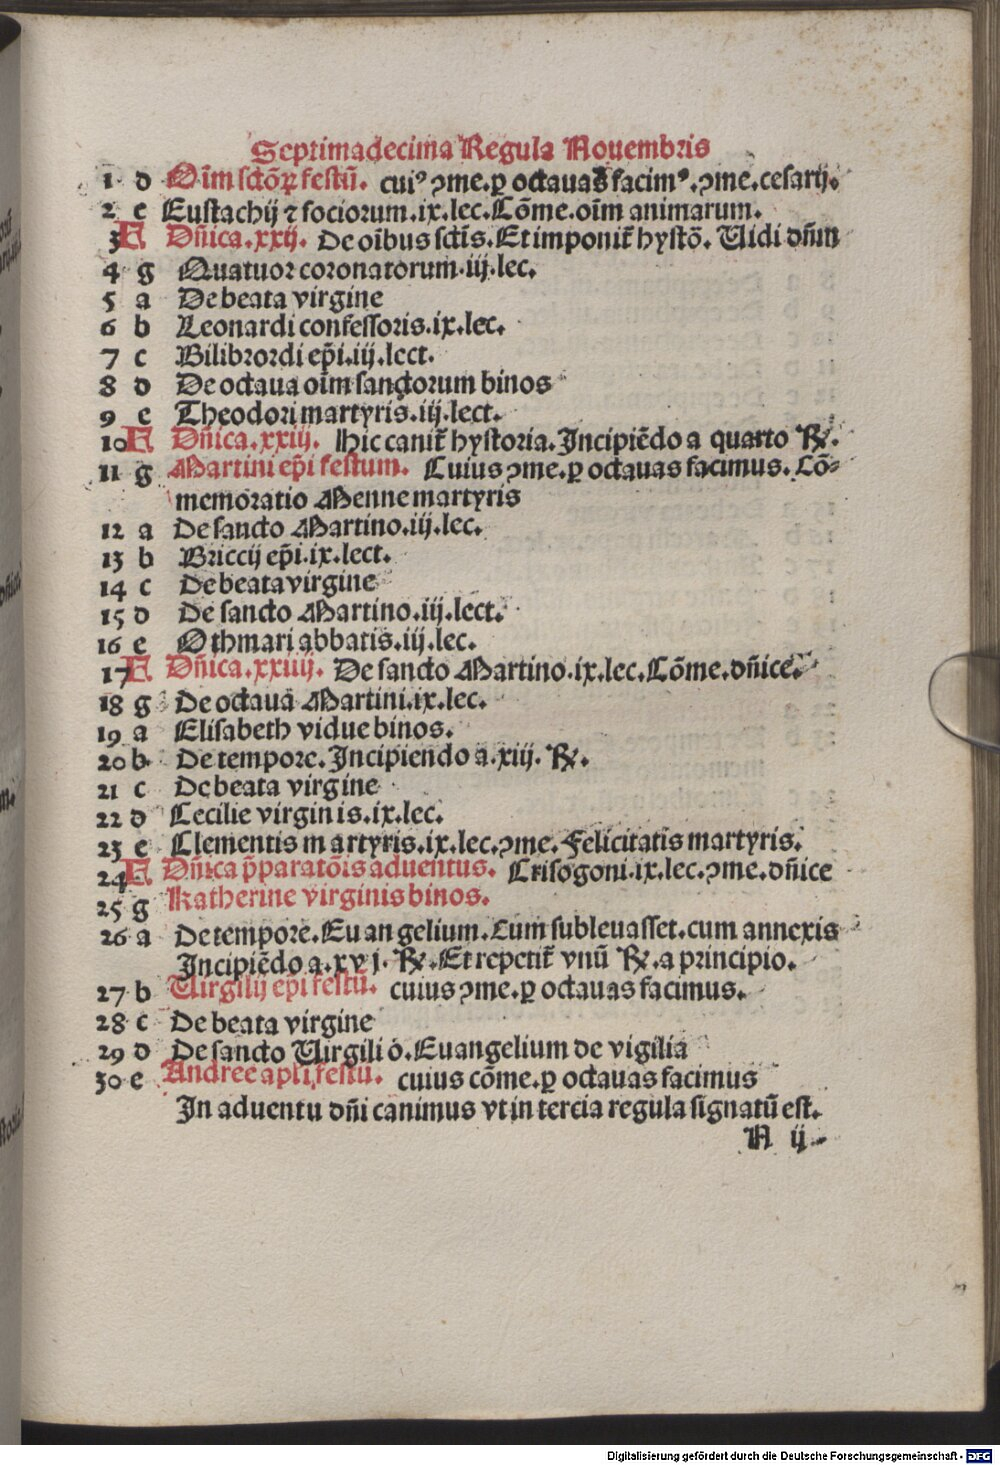 Septimadecima Regula Nouembris
1 d Oĩm sctõꝝ festũ. cuiꝰ ↄme. ꝑ octauas facimꝰ. ↄme. cesarij.
2 e Eustachij ⁊ sociorum. ix. lec. Cõme. oĩm animarum.
3 F Dñica. xxij. De oĩbus sctĩs. Et imponit᷑ hystõ. Uidi dñm
4 g Quatuor coronatorum. iij. lec.
5 a De beata virgine
6 b Leonardi confessoris. ix. lec.
7 c Bilibrordi ep̃i. iij. lect.
8 d De octaua oĩm sanctorum binos
9 e Theodori martyris. iij. lect.
10 F Dñica. xxiij. Hic canit᷑ hystoria. Incipiẽdo a quarto ℞.
11 g Martini ep̃i festum. Cuius ↄme. ꝑ octauas facimus. Cõ-
memoratio Menne martyris
12 a De sancto Martino. iij. lec.
13 b Briccij ep̃i. ix. lect.
14 c De beata virgine
15 d De sancto Martino. iij. lect.
16 e Othmari abbatis. iij. lec.
17 F Dñica. xxiiij. De sancto Martino. ix. lec. Cõme. dñice.
18 g De octaua Martini. ix. lec.
19 a Elisabeth vidue binos.
20 b De tempore. Incipiendo a. xiij. ℞.
21 c De beata virgine
22 d Cecilie virginis. ix. lec.
23 e Clementis martyris. ix. lec. ↄme. Felicitatis martyris.
24 F Dñica p̃paratõis aduentus. Crisogoni. ix. lec. ↄme. dñice
25 g Katherine virginis binos.
26 a De tempore. Euangelium. Cum subleuasset. cum annexis
Incipiẽdo a. xvj. ℞. Et repetit᷑ vnũ ℞. a principio.
27 b Uirgilij ep̃i festũ. cuius ↄme. ꝑ octauas facimus.
28 c De beata virgine
29 d De sancto Uirgilio. Euangelium de vigilia
30 e Andree apl̃i festũ. cuius cõme. ꝑ octauas facimus
In aduentu dñi canimus vt in tercia regula signatũ est.
A ij
Digitalisierung gefördert durch die Deutsche Forschungsgemeinschaft - DFG